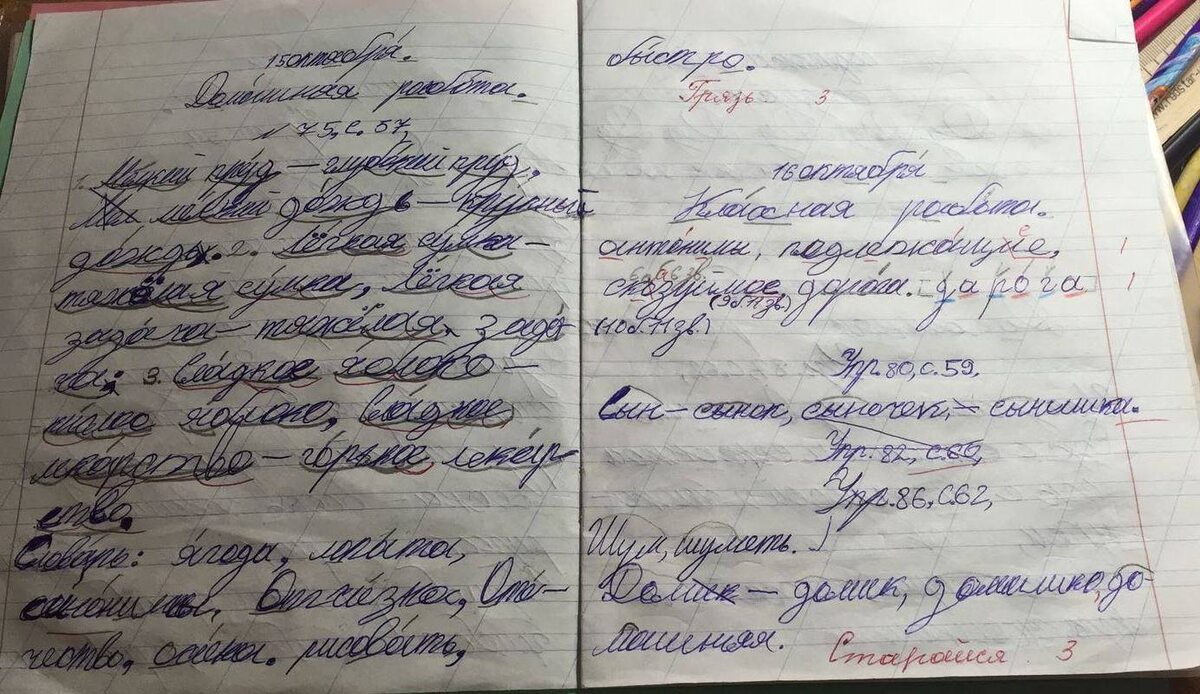 15 октября.
Домашняя работа.
№ 75, с. 57,
1. Мелкий пруд — глубокий пруд,
мелкий дождь — крупный
дождь. 2. Лёгкая сумка —
тяжёлая сумка, Лёгкая
задача — тяжёлая задо-
ча. 3. Сладкое яблоко —
яблоко, Сладкое
лекарство — горькое лекар-
ство.
Словарь: ягода, лопата,
синонимы, Отчизна, Оте-
чество, осина. рисовать,
быстро.
Грязь 3
16 октября
Классная работа.
антонимы, подлежащее, 1
сказуемое дорога. дарога 1
(9б.11зв.)
(10б.11зв.)
Упр. 80, с. 59.
Сын — сынок, сыночек, — сынишка.
Упр. 82, с. 60,
Упр. 86, с. 62,
Шум, шуметь.
Домик — домик, домишко, до-
машняя.
Старайся. 3